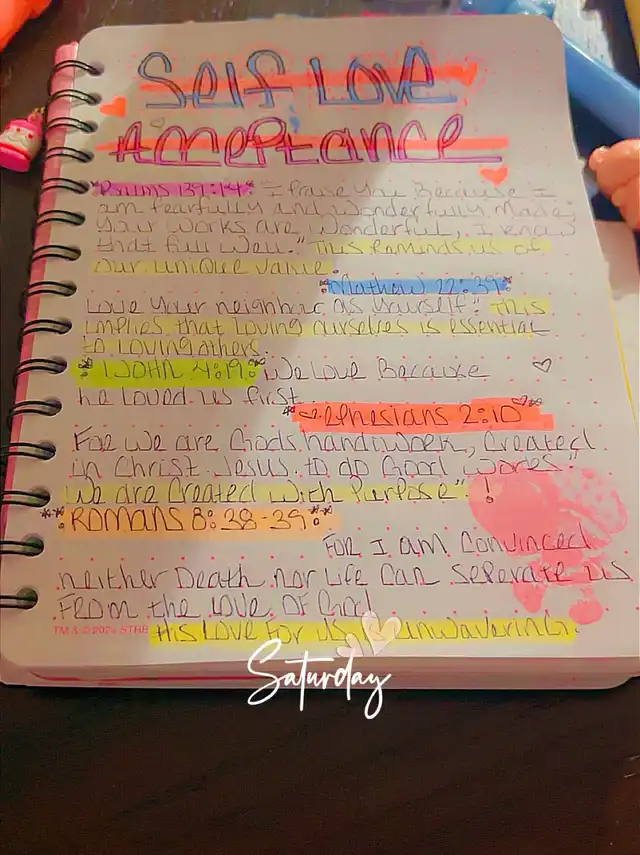 Self Love
Acceptance
"Psalms 139:14" "I Praise You Because I
am fearfully and wonderfully Made;
Your works are wonderful, I know
that full well." This Reminds us of
our unique value.
Mathew 22:39
Love Your neighbor as Yourself." This
implies that loving ourselves is essential
to loving others.
1 JOHN 4:19: We Love Because
he loved us first.
Ephesians 2:10
For we are Gods handiwork, Created
in Christ Jesus to do Good works"
We are Created with Purpose" !
Romans 8:38-39
For I am Convinced
neither Death nor Life Can Seperate us
From the love of God
TM & © 2024
His Love for us is unwavering.
Saturday